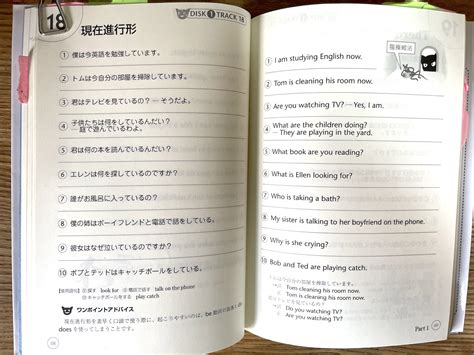 18
現在進行形
DISK 1 TRACK 18
① 僕は今英語を勉強しています。
② トムは今自分の部屋を掃除しています。
③ 君はテレビを見ているの？ ― そうだよ。
④ 子供たちは何をしているんだい？
― 庭で遊んでいるわよ。
⑤ 君は何の本を読んでいるんだい？
⑥ エレンは何を探しているのですか？
⑦ 誰がお風呂に入っているの？
⑧ 僕の姉はボーイフレンドと電話で話をしている。
⑨ 彼女はなぜ泣いているのですか？
⑩ ボブとテッドはキャッチボールをしている。
look for
talk on the phone
キャッチボールをする play catch
ワンポイントアドバイス
① I am studying English now.
② Tom is cleaning his room now.
③ Are you watching TV? ― Yes, I am.
④ What are the children doing?
― They are playing in the yard.
⑤ What book are you reading?
⑥ What is Ellen looking for?
⑦ Who is taking a bath?
⑧ My sister is talking to her boyfriend on the phone.
⑨ Why is she crying?
⑩ Bob and Ted are playing catch.
トムは今自分の部屋を掃除しています。
Tom cleaning his room now.
→ Tom is cleaning his room now.
Do you watching TV?
→ Are you watching TV?
Part 1
19